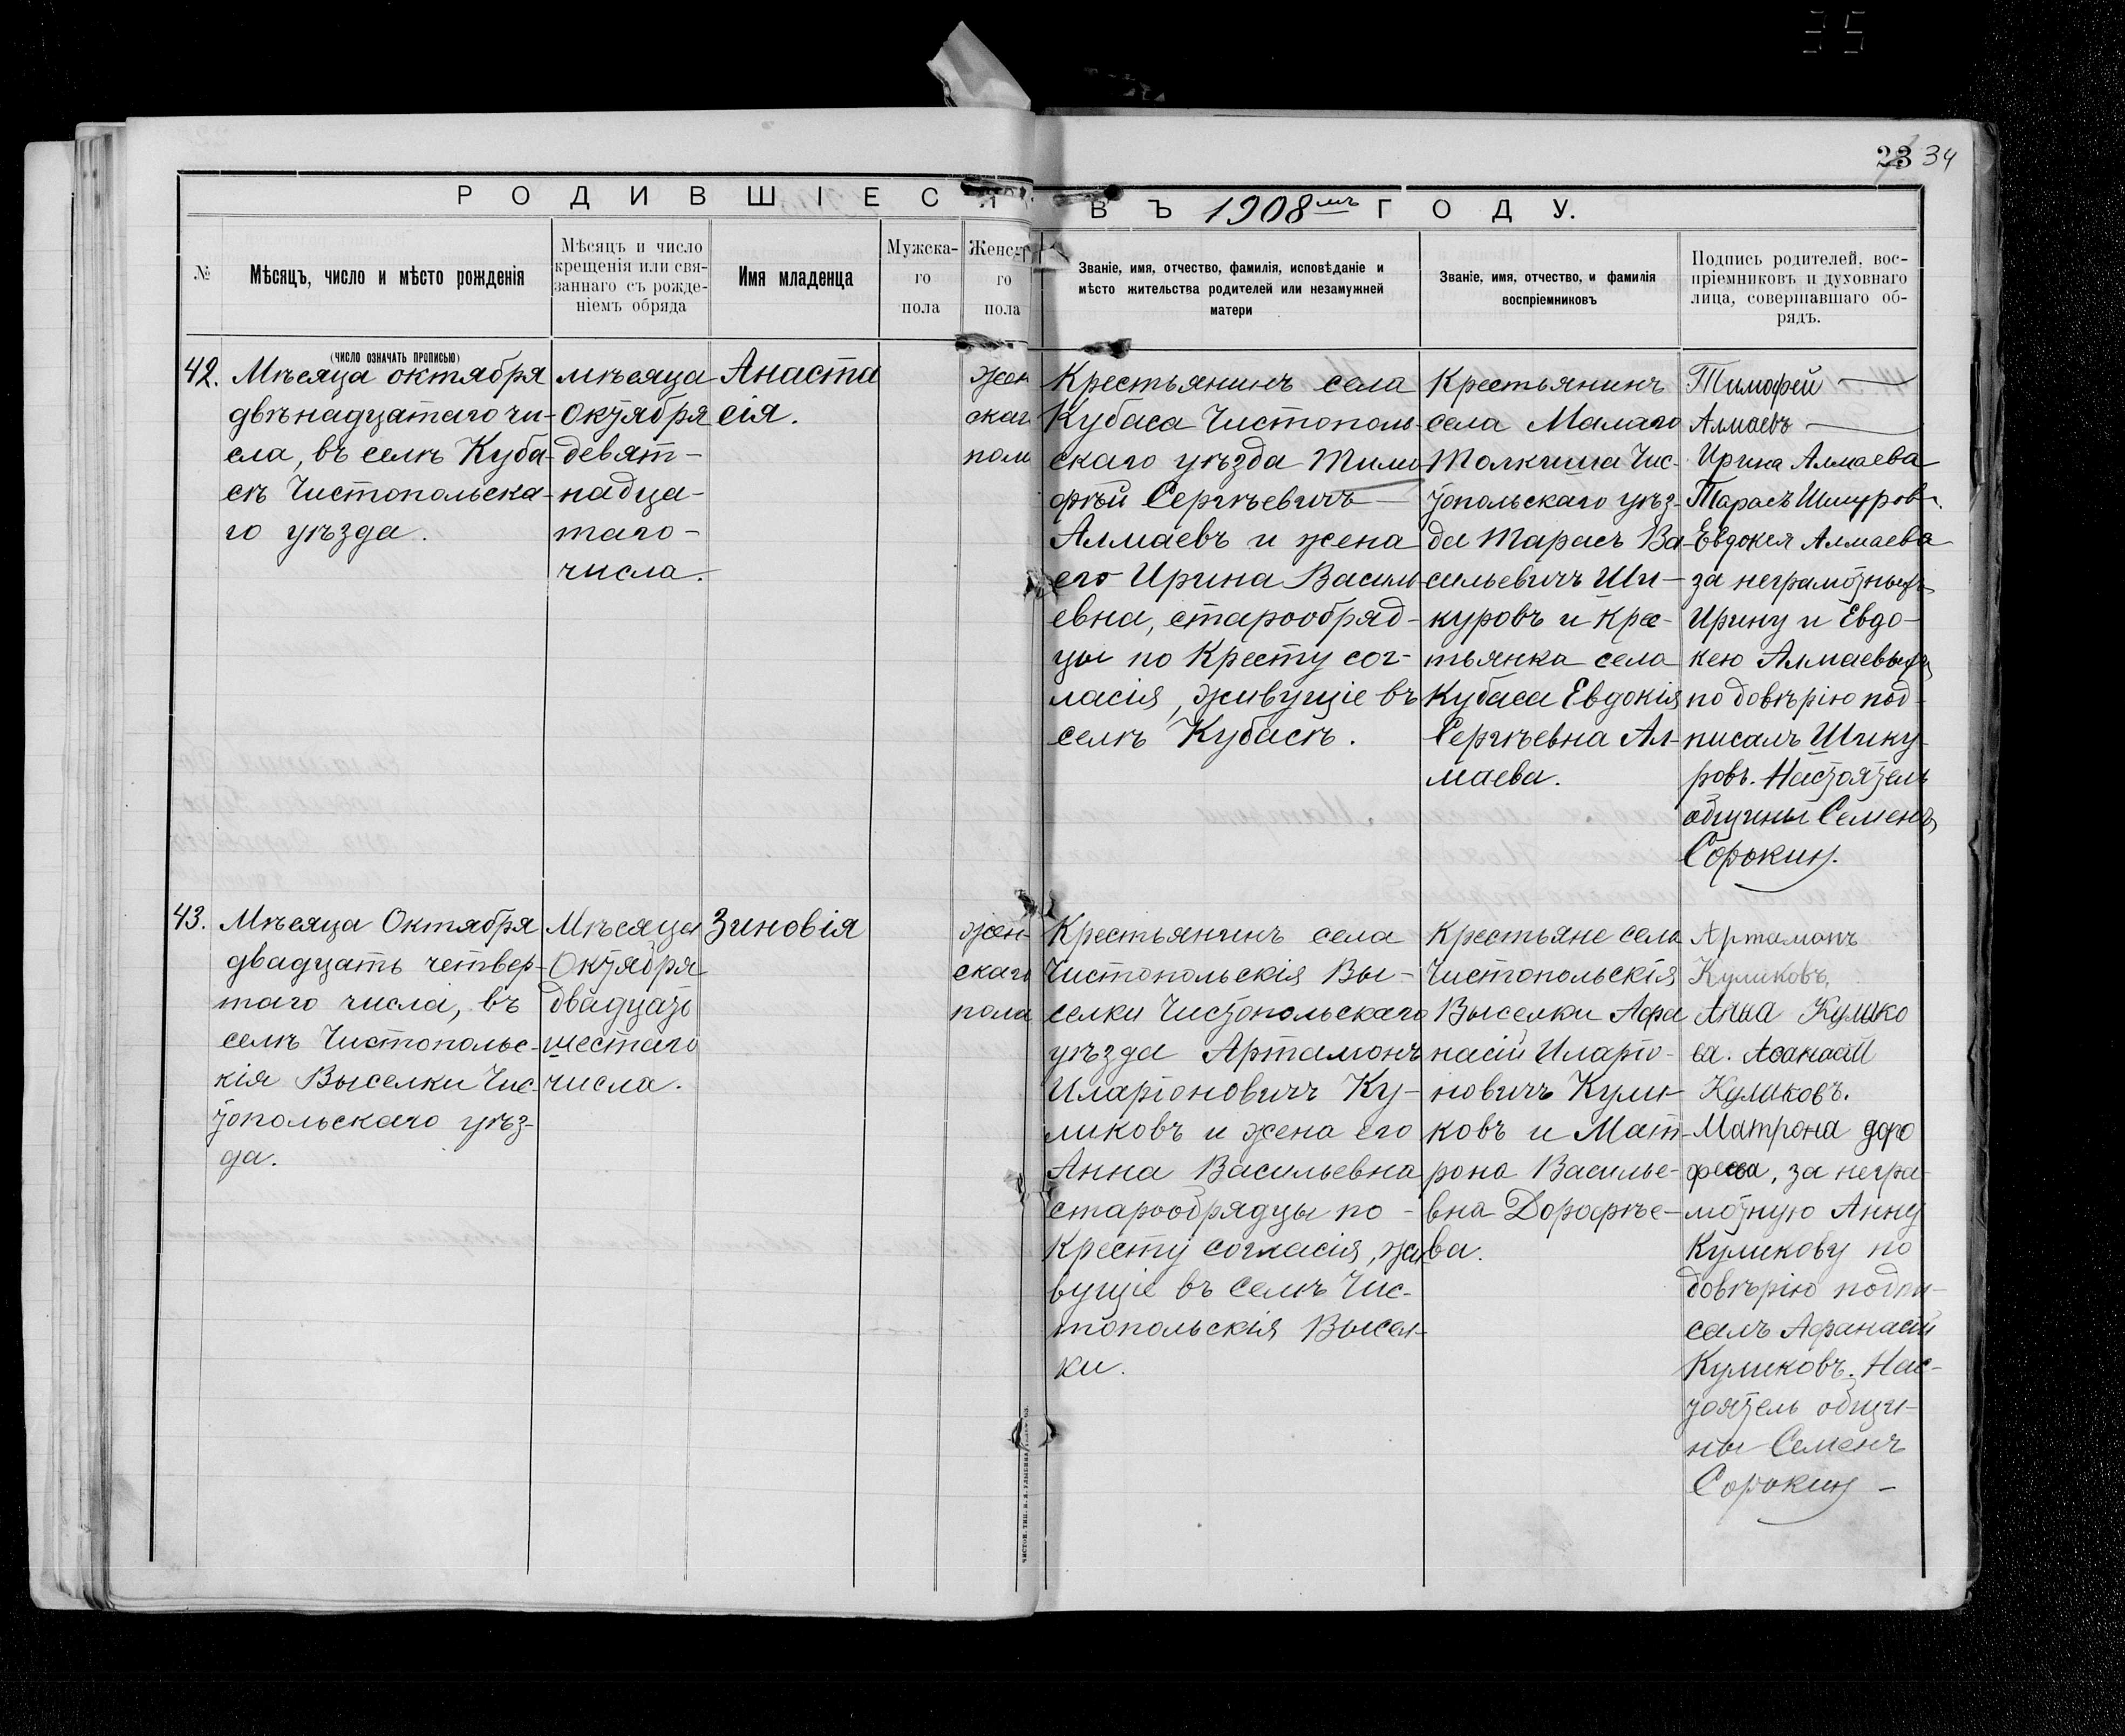 23 34
РОДИВШІЕСЯ ВЪ 1908мъ ГОДУ.
№
Мѣсяцъ, число и мѣсто рожденія
(число означать прописью)
Мѣсяцъ и число
крещенія или свя-
заннаго съ рожде-
ніемъ обряда
Имя младенца
Мужска-
го
пола
Женс
го
пола
Званіе, имя, отчество, фамилія, исповѣданіе и
мѣсто жительства родителей или незамужней
матери
Званіе, имя, отчество, и фамилія
воспріемниковъ
Подпись родителей, вос-
пріемниковъ и духовнаго
лица, совершавшаго об-
рядъ.
42.
Мѣсяца октября
двѣнадцатаго чи-
сла, въ селѣ Куба-
сѣ Чистопольска-
го уѣзда.
мѣсяца
Октября
девят-
надца-
таго-
числа.
Анаста
сія.
жен
скаг
пола
Крестьянинъ села
Кубаса Чистополь-
скаго уѣзда Тимо-
фѣй Сергѣевичъ
Алмаевъ и жена
его Ирина Васили-
евна, старообряд-
цы по Кресту сог-
ласія, живущіе въ
селѣ Кубасѣ.
Крестьянинъ
села Малаго
Толкиша Чис-
топольскаго уѣз-
да Тарасъ Ва-
сильевичъ Ши-
куровъ и кре-
тьянка села
Кубаса Евдокія
Сергѣевна Ал-
маева.
Тимофей
Алмаевъ
Ирина Алмаева
Тарасъ Шикуровъ
Евдокея Алмаева
за неграмотныхъ
Ирину и Евдо-
кею Алмаевыхъ
по довѣрію под-
писалъ Шику-
ровъ. Настоятель
общины Семенъ
Сорокинъ.
43.
Мѣсяца Октября
двадцать четвер-
таго числа, въ
селѣ Чистопольс-
кія Выселки Чис-
топольскаго уѣз-
да.
Мѣсяца
Октября
двадцать
шестаго
числа.
Зиновія
жен-
скаго
пола
Крестьянинъ села
Чистопольскія Вы-
селки Чистопольскаго
уѣзда Артамонъ
Иларіоновичъ Ку-
ликовъ и жена его
Анна Васильевна
старообрядцы по -
Кресту согласія, жи
вущіе въ селѣ Чис-
топольскія Высел-
ки.
Крестьяне села
Чистопольскія
Выселки Афа
насій Иларіо-
новичъ Кули-
ковъ и Мат-
рона Василье-
вна Дорофѣе-
ва.
Артамонъ
Куликовъ,
Анна Кулико
ва. Аѳанасій
Куликовъ.
Матрона доро
феева, за негра-
мотную Анну
Куликову по
довѣрію подпи-
салъ Афанасій
Куликовъ. Нас-
тоятель общи-
ны Семенъ
Сорокинъ -